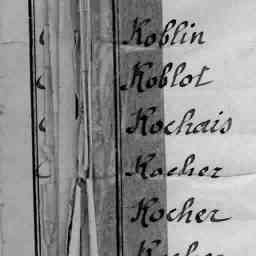 Koblin
Koblot
Kochais
Kocher
Kocher